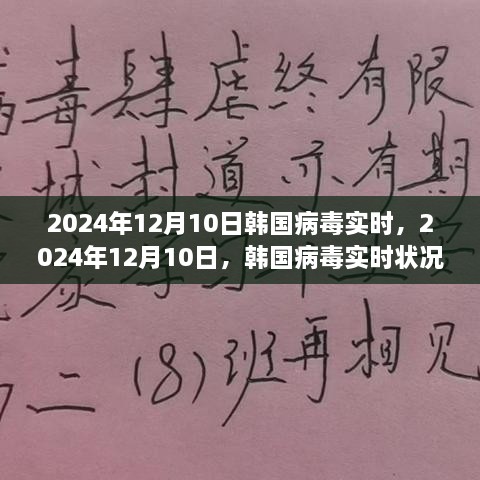 病毒肆虐终有限
城封道亦有期
2024年12月10日韩国病毒实时，2
024年12月10日，韩国病毒实时状况
二(8)班再相见